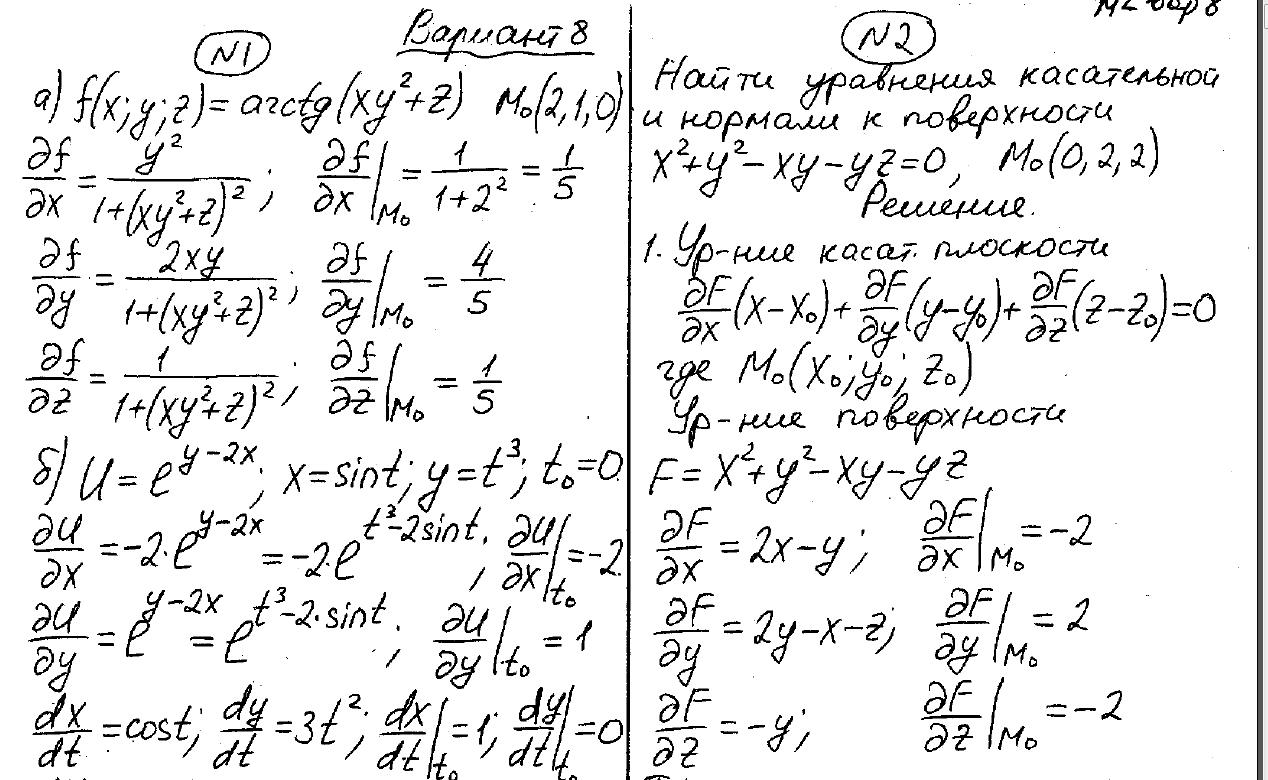 Вариант 8
N1
а) f(x;y;z)=arctg(xy²+z) M₀(2,1,0)
∂f/∂x = y²/(1+(xy²+z)²); ∂f/∂x|M₀ = 1/(1+2²) = 1/5
∂f/∂y = 2xy/(1+(xy²+z)²); ∂f/∂y|M₀ = 4/5
∂f/∂z = 1/(1+(xy²+z)²); ∂f/∂z|M₀ = 1/5
б) U=e^(y-2x); x=sint; y=t³; t₀=0
∂U/∂x = -2·e^(y-2x) = -2·e^(t³-2sint); ∂U/∂x|t₀ = -2
∂U/∂y = e^(y-2x) = e^(t³-2·sint); ∂U/∂y|t₀ = 1
dx/dt = cost; dy/dt = 3t²; dx/dt|t₀ = 1; dy/dt|t₀ = 0
N2
Найти уравнения касательной
и нормали к поверхности
x²+y²-xy-yz=0, M₀(0,2,2)
Решение.
1. Ур-ние касат. плоскости
∂F/∂x(x-x₀)+∂F/∂y(y-y₀)+∂F/∂z(z-z₀)=0
где M₀(x₀;y₀;z₀)
Ур-ние поверхности
F=x²+y²-xy-yz
∂F/∂x = 2x-y; ∂F/∂x|M₀ = -2
∂F/∂y = 2y-x-z; ∂F/∂y|M₀ = 2
∂F/∂z = -y; ∂F/∂z|M₀ = -2